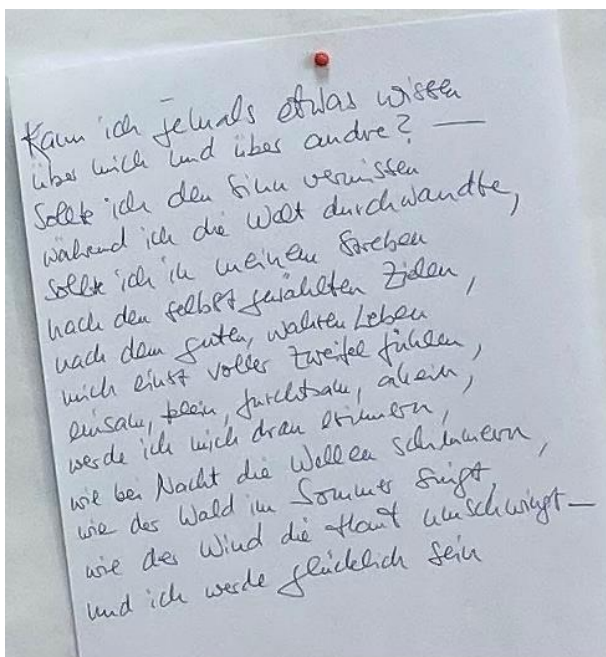 Kann ich jemals etwas wissen
über mich und über andre? —
Sollte ich den Sinn vermissen
während ich die Welt durchwandre,
sollte ich in meinem Streben
nach den selbst gewählten Zielen,
nach dem guten, wahren Leben
mich einst voller Zweifel fühlen,
einsam, klein, furchtsam, allein,
werde ich mich dran erinnern,
wie bei Nacht die Wellen schimmern,
wie der Wald im Sommer singt,
wie der Wind die Haut umschwingt —
und ich werde glücklich sein